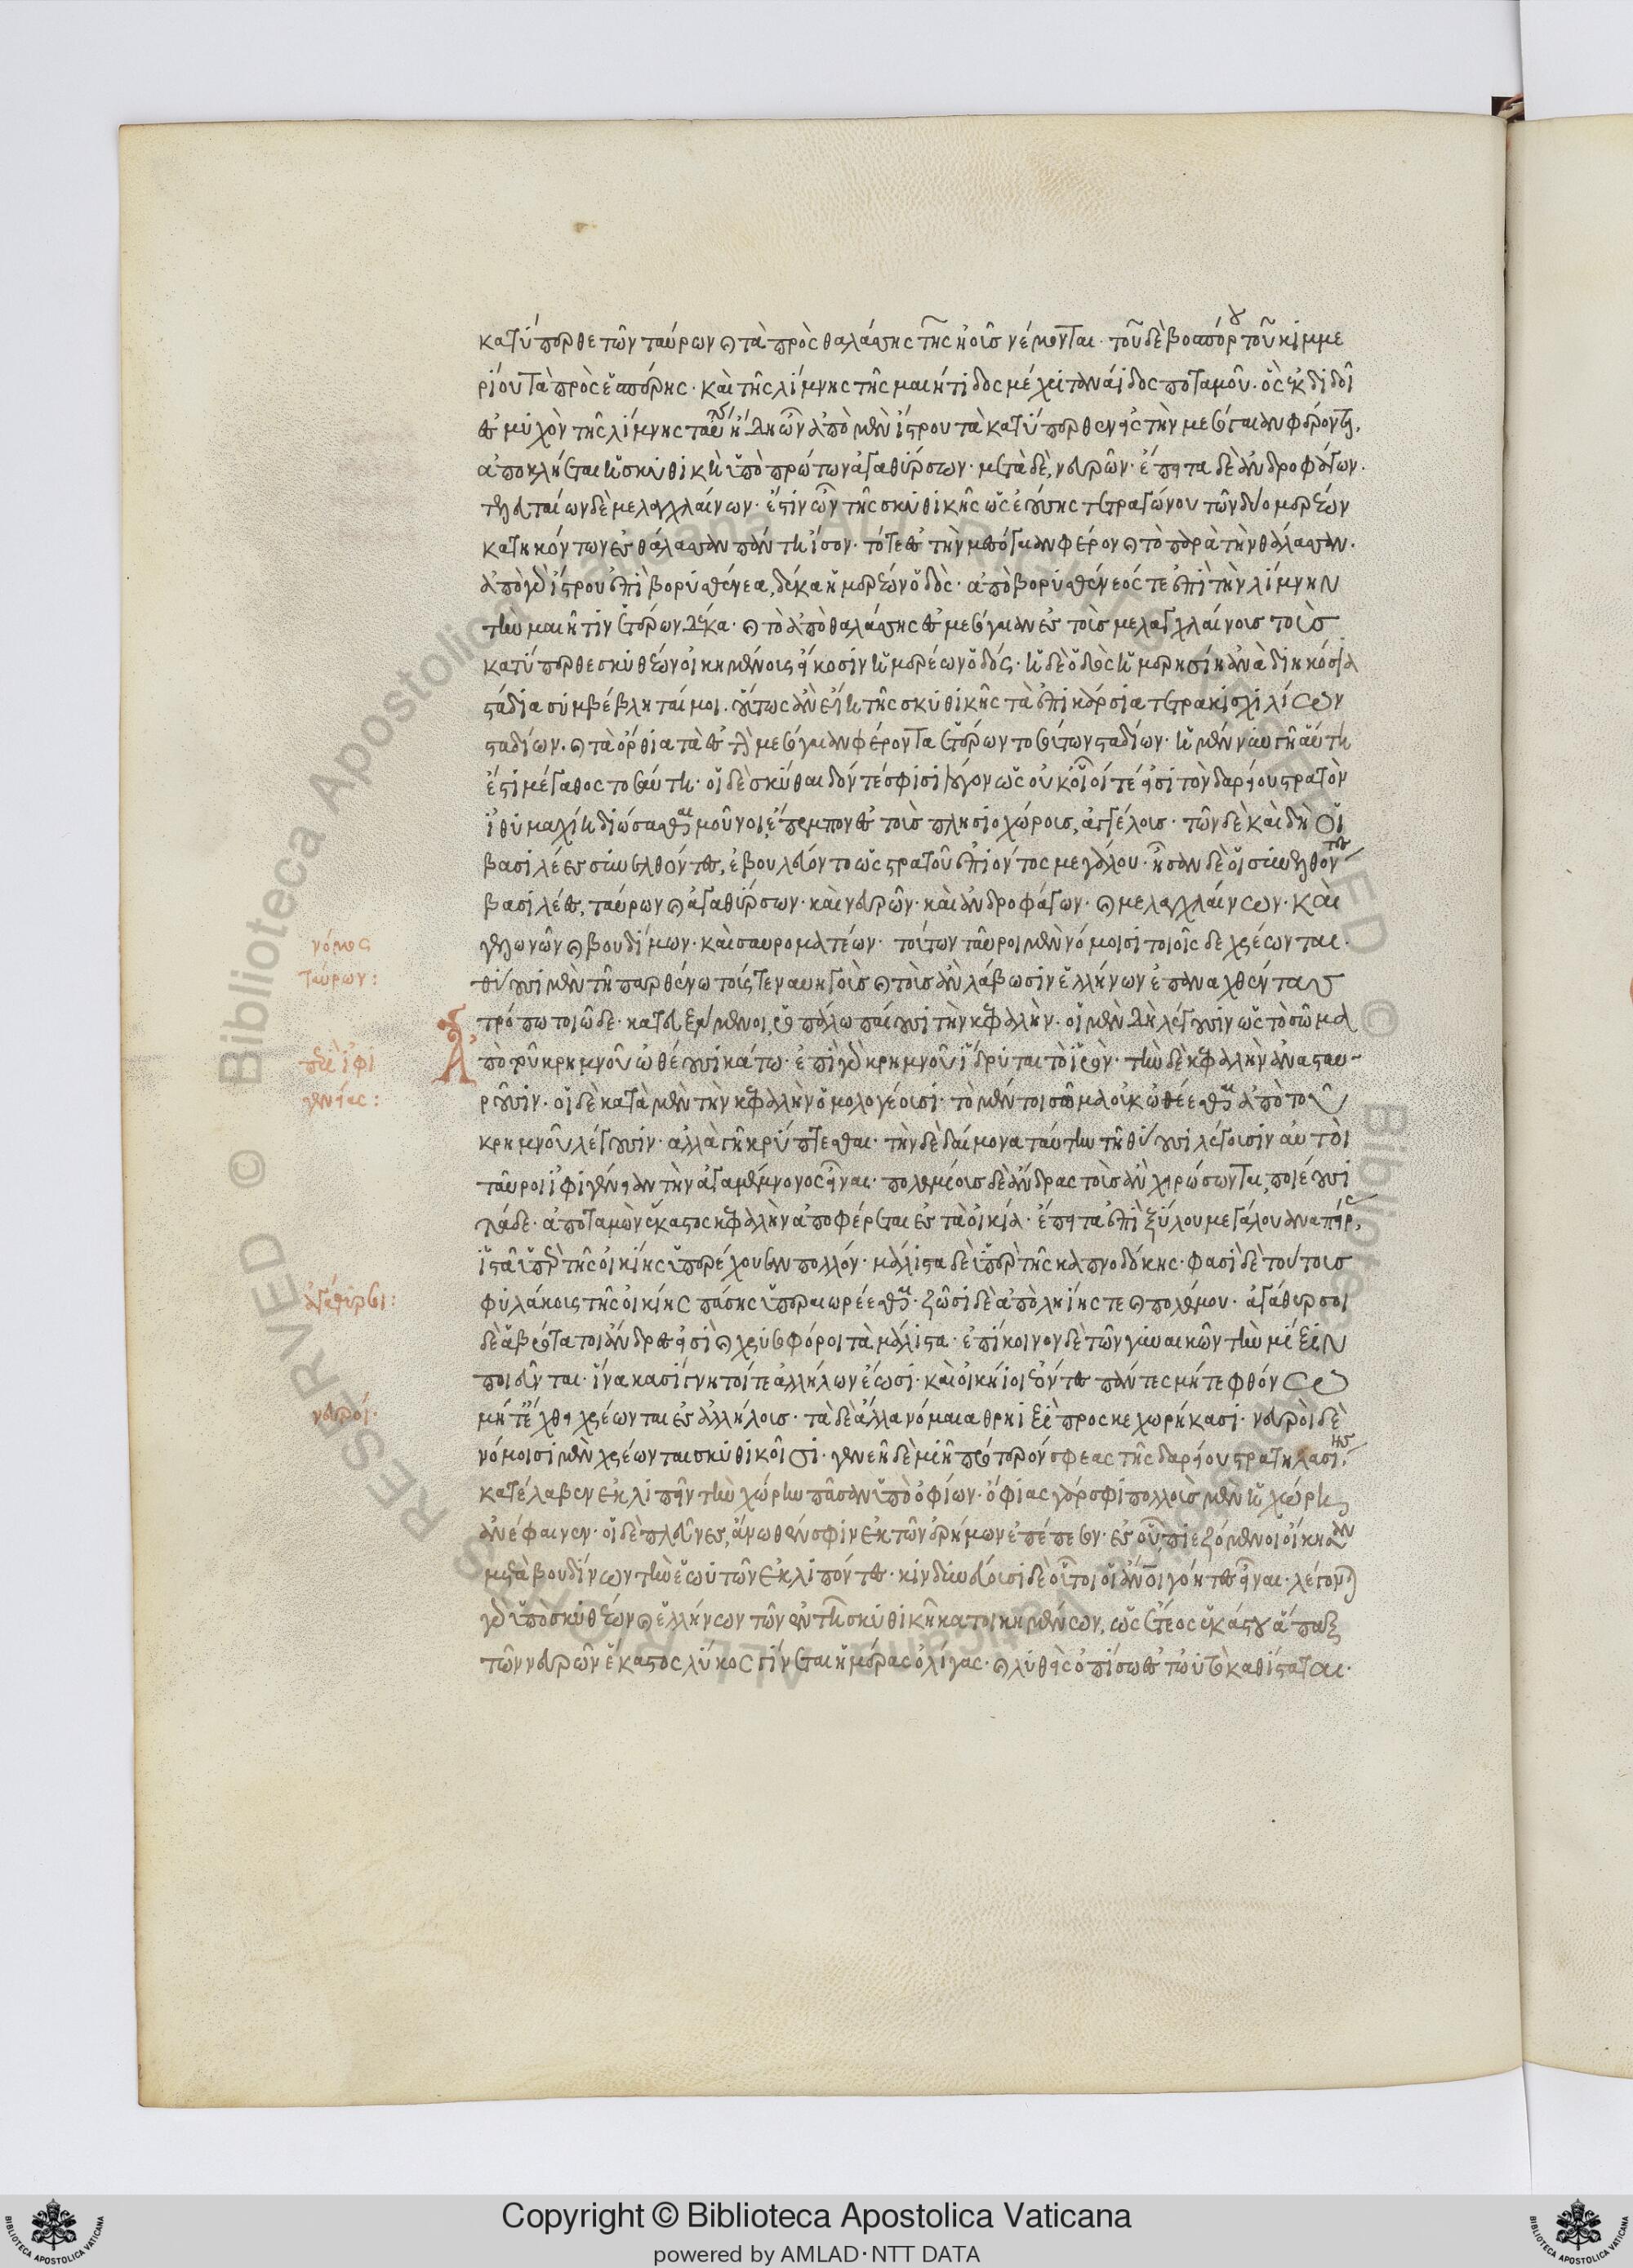 κατύπερθε τῶν ταύρων καὶ τὰ πρὸς θαλάσσης τῆς ἠοίης νέμονται· τοῦ δὲ βοσπόρου τοῦ κιμμε
ρίου τὰ πρὸς ἑσπέρης· καὶ τῆς λίμνης τῆς μαιήτιδος μέχρι τανάιδος ποταμοῦ· ὃς ἐκδιδοῖ
ἐς μυχὸν τῆς λίμνης ταύτης· ἤδη ὦν ἀπὸ μὲν ἴστρου τὰ κατύπερθεν ἐς τὴν μεσόγαιαν φέροντα,
ἀποκληίεται ἡ σκυθικὴ ὑπὸ πρώτων ἀγαθύρσων· μετὰ δὲ, νευρῶν· ἔπειτα δὲ ἀνδροφάγων·
τελευταίων δὲ μελαγχλαίνων· ἔστιν ὦν τῆς σκυθικῆς ὡς ἐούσης τετραγώνου τῶν δύο μερέων
κατηκόντων ἐς θάλασσαν πάντη ἴσον· τό τε ἐς τὴν μεσόγαιαν φέρον καὶ τὸ παρὰ τὴν θάλασσαν·
ἀπὸ γὰρ ἴστρου ἐπὶ βορυσθένεα, δέκα ἡμερέων ὁδὸς· ἀπὸ βορυσθένεός τε ἐπὶ τὴν λίμνην
τὴν μαιῆτιν ἑτέρων δέκα· καὶ τὸ ἀπὸ θαλάσσης ἐς μεσόγαιαν ἐς τοὺς μελαγχλαίνους τοὺς
κατύπερθε σκυθέων οἰκημένους εἴκοσιν ἡμερέων ὁδός· ἡ δὲ ὁδὸς ἡ ἡμερησίη ἀνὰ διηκόσια
στάδια συμβέβληταί μοι. οὕτως ἂν εἴη τῆς σκυθικῆς τὰ ἐπικάρσια τετρακισχιλίων
σταδίων· καὶ τὰ ὄρθια τὰ ἐς τὴν μεσόγαιαν φέροντα ἑτέρων τοσούτων σταδίων· ἡ μέν νυν γῆ αὕτη
ἐστὶ μέγαθος τοσαύτη· οἱ δὲ σκύθαι δόντες σφίσι λόγον ὡς οὐκ οἷοί τέ εἰσι τὸν δαρείου στρατὸν
ἰθυμαχίῃ διώσασθαι μοῦνοι, ἔπεμπον ἐς τοὺς πλησιοχώρους, ἀγγέλους· τῶν δὲ καὶ δὴ οἱ
βασιλέες συνελθόντες, ἐβουλεύοντο ὡς στρατοῦ ἐπιόντος μεγάλου· ἦσαν δὲ οἱ συνελθόντες
βασιλέες, ταύρων καὶ ἀγαθύρσων· καὶ νευρῶν· καὶ ἀνδροφάγων· καὶ μελαγχλαίνων· καὶ
γελωνῶν καὶ βουδίνων· καὶ σαυροματέων· τούτων ταῦροι μὲν νόμοισι τοιοῖσδε χρέωνται·
νόμος
ταύρων:
θύουσι μὲν τῇ παρθένω τούς τε ναυηγοὺς καὶ τοὺς ἂν λάβωσιν ἑλλήνων ἐπαναχθέντας
τρόπω τοιῶδε· καταρξάμενοι, ῥοπάλω παίουσι τὴν κεφαλήν· οἱ μὲν δὴ λέγουσιν ὡς τὸ σῶμα
περὶ ἰφι
γενείας:
Ἀπὸ τοῦ κρημνοῦ ὠθέουσι κάτω· ἐπὶ γὰρ κρημνοῦ ἵδρυται τὸ ἱρὸν· τὴν δὲ κεφαλὴν ἀνασταυ-
ροῦσιν· οἱ δὲ κατὰ μὲν τὴν κεφαλὴν ὁμολογέουσι· τὸ μέντοι σῶμα οὐκ ὠθέεσθαι ἀπὸ τοῦ
κρημνοῦ λέγουσιν· ἀλλὰ γῆ κρύπτεσθαι· τὴν δὲ δαίμονα ταύτην τῆ θύουσι λέγουσιν αὐτοὶ
ταῦροι ἰφιγένειαν τὴν ἀγαμέμνονος εἶναι· πολεμίους δὲ ἄνδρας τοὺς ἂν χειρώσωνται, ποιέουσι
τάδε· ἀποταμὼν ἕκαστος κεφαλὴν ἀποφέρεται ἐς τὰ οἰκία· ἔπειτα ἐπὶ ξύλου μεγάλου ἀναπείρας,
ἱστᾶ ὑπὲρ τῆς οἰκίης ὑπερέχουσαν πολλόν· μάλιστα δὲ ὑπὲρ τῆς καπνοδόκης· φασὶ δὲ τούτους
ἀγάθυρσοι:
φυλάκους τῆς οἰκίης πάσης ὑπεραιωρέεσθαι· ζῶσι δὲ ἀπὸ ληίης τε καὶ πολέμου· ἀγάθυρσοι
δὲ ἁβρότατοι ἄνδρες εἰσὶ καὶ χρυσοφόροι τὰ μάλιστα· ἐπίκοινον δὲ τῶν γυναικῶν τὴν μίξιν
ποιεῦνται· ἵνα κασίγνητοί τε ἀλλήλων ἔωσι· καὶ οἰκήιοι ἐόντες πάντες μήτε φθόνω
νευροί·
μήτ' ἔχθει χρέωνται ἐς ἀλλήλους· τὰ δὲ ἄλλα νόμαια θρήιξι προσκεχωρήκασι· νευροὶ δὲ
νόμοισι μὲν χρέωνται σκυθικοῖσι· γενεῇ δὲ μιῇ πρότερόν σφεας τῆς δαρείου στρατηλασίης
κατέλαβεν ἐκλιπεῖν τὴν χώρην πᾶσαν ὑπὸ ὀφίων· ὄφιας γάρ σφι πολλοὺς μὲν ἡ χώρη
ἀνέφαινεν· οἱ δὲ πλεῦνες, ἄνωθέν σφιν ἐκ τῶν ἐρήμων ἐπέπεσον· ἐς οὗ πιεζόμενοι οἴκησαν
μετὰ βουδίνων τὴν ἑωυτῶν ἐκλιπόντες· κινδυνεύουσι δὲ οὗτοι οἱ ἄνθρωποι γόητες εἶναι· λέγονται
γὰρ ὑπὸ σκυθέων καὶ ἑλλήνων τῶν ἐν τῇ σκυθικῇ κατοικημένων, ὡς ἔτεος ἑκάστου ἅπαξ
τῶν νευρῶν ἕκαστος λύκος γίνεται ἡμέρας ὀλίγας· καὶ αὖθις ὀπίσω ἐς τὠυτὸ καθίσταται·
Copyright © Biblioteca Apostolica Vaticana
powered by AMLAD·NTT DATA